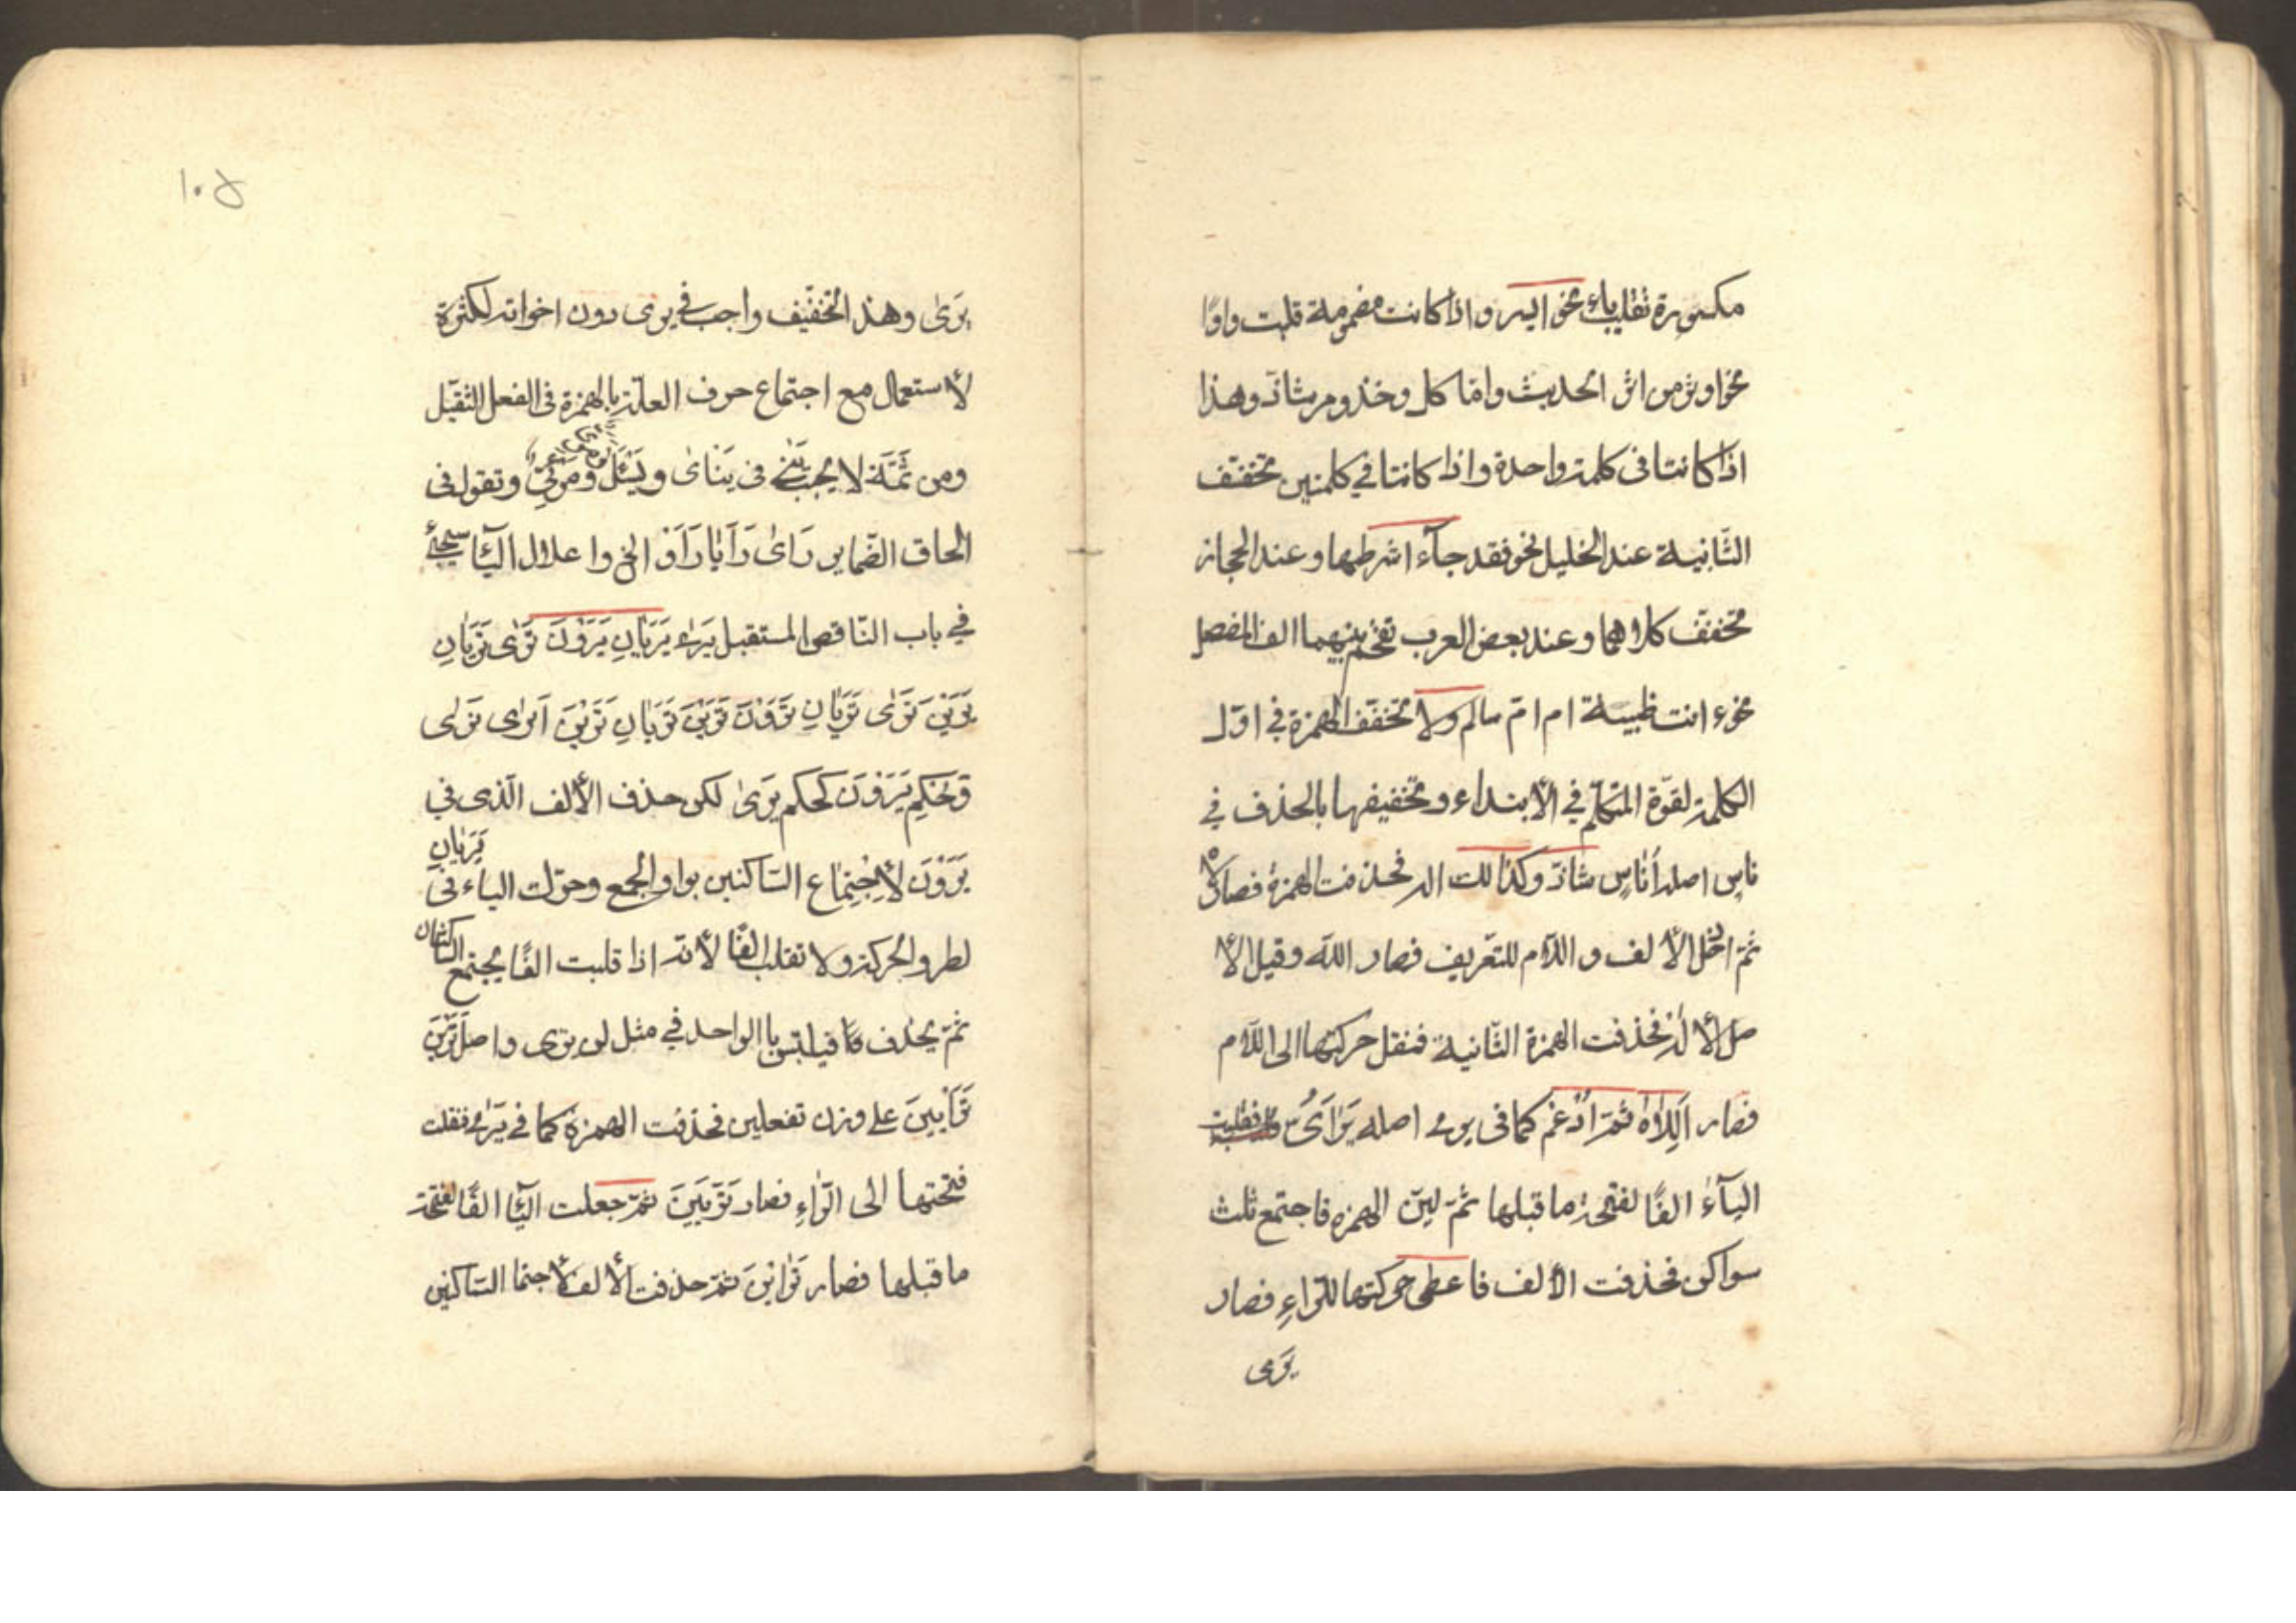 مكسورة تقلب ياء نحو ايسر واذا كانت مضمومة قلبت واوًا
نحو اوثر من اثر الحديث وامّا كل وخذ ومر شاذّ وهذا
اذا كانتا فى كلمة واحدة واذا كانتا في كلمتين تخفّف
الثّانية عند الخليل نحو فقد جآء اشرطها وعند الحجاز
تخفّف كلاهما وعند بعض العرب تقحّم بينهما الف للفصل
نحو ء انت ظبيية ام امّ سالم ولا تخفّف الهمزة في اوّل
الكلمة لقوّة المتكلّم في الأبتداء وتخفيفها بالحذف في
ناس اصله أناس شاذّ وكذالك اله فحذفت الهمزة فصار لاه
ثمّ ادخل الألف واللآم للتّعريف فصار اللّه وقيل الأ
صل الأله فحذفت الهمزة الثّانية فنقل حركتها الى اللآم
فصار اَلِلاه ثمّ اُدْغم كما فى يرى اصله يَرْاَىُ فقلبت
اليآءُ الفًا لفتحة ما قبلها ثمّ ليّن الهمزه فاجتمع ثلث
سواكن فحذفت الألف فاعطى حركتها للرّاءِ فصار
يَرى
١٠۵
يَرىٰ وهذ التخفيف واجب في يرى دون اخواته لكثرة
لأستعمال مع اجتماع حرف العلّة بالهمزة فى الفعل الثّقيل
ومن ثمّة لا يجب فى يَنْاىٰ ويَسْئَلُ ومَرْئِىّ وتقول فى
الحاق الضّماير رَاىٰ رَاَيٰا رَاَوْ الخ واعلال اليٓا سيجئُ
في باب النّاقص المستقبل يَرىٰ يَرَيٰانِ يَرَوْنَ تَرٰى تَرَيٰانِ
يَرَيْنَ تَرٰى تَرَيٰانِ تَرَوْنَ تَرَيْنَ تَرَيٰانِ تَرَيْنَ اَرٰى نَرٰى
وَحُكْمِ يَرَوْنَ كحكم يَرىٰ لكن حذف الألف الّذى في
يَرَوْنَ لأجتماع السّاكنين بواو الجمع وحرّكت الياء فى يَرَيٰانِ
لطروّ الحركة ولا تقلب الفًا لأنّه اذا قلبت الفًا يجتمع السّاكنان
ثمّ يحذف فيلتبس بالواحد في مثل لن يرى واصل تَرَيْنَ
تَرْاَيِينَ على وزن تفعلين فحذفت الهمزة كما في يَرىٰ فنقلت
فتحتها الى الرّاءِ فصار تَرَيِينَ ثمّ جعلت اليٓا الفًا لفتحة
ما قبلها فصار تَرٰايْنَ ثمّ حذفت الألف لأجتما السّاكنين